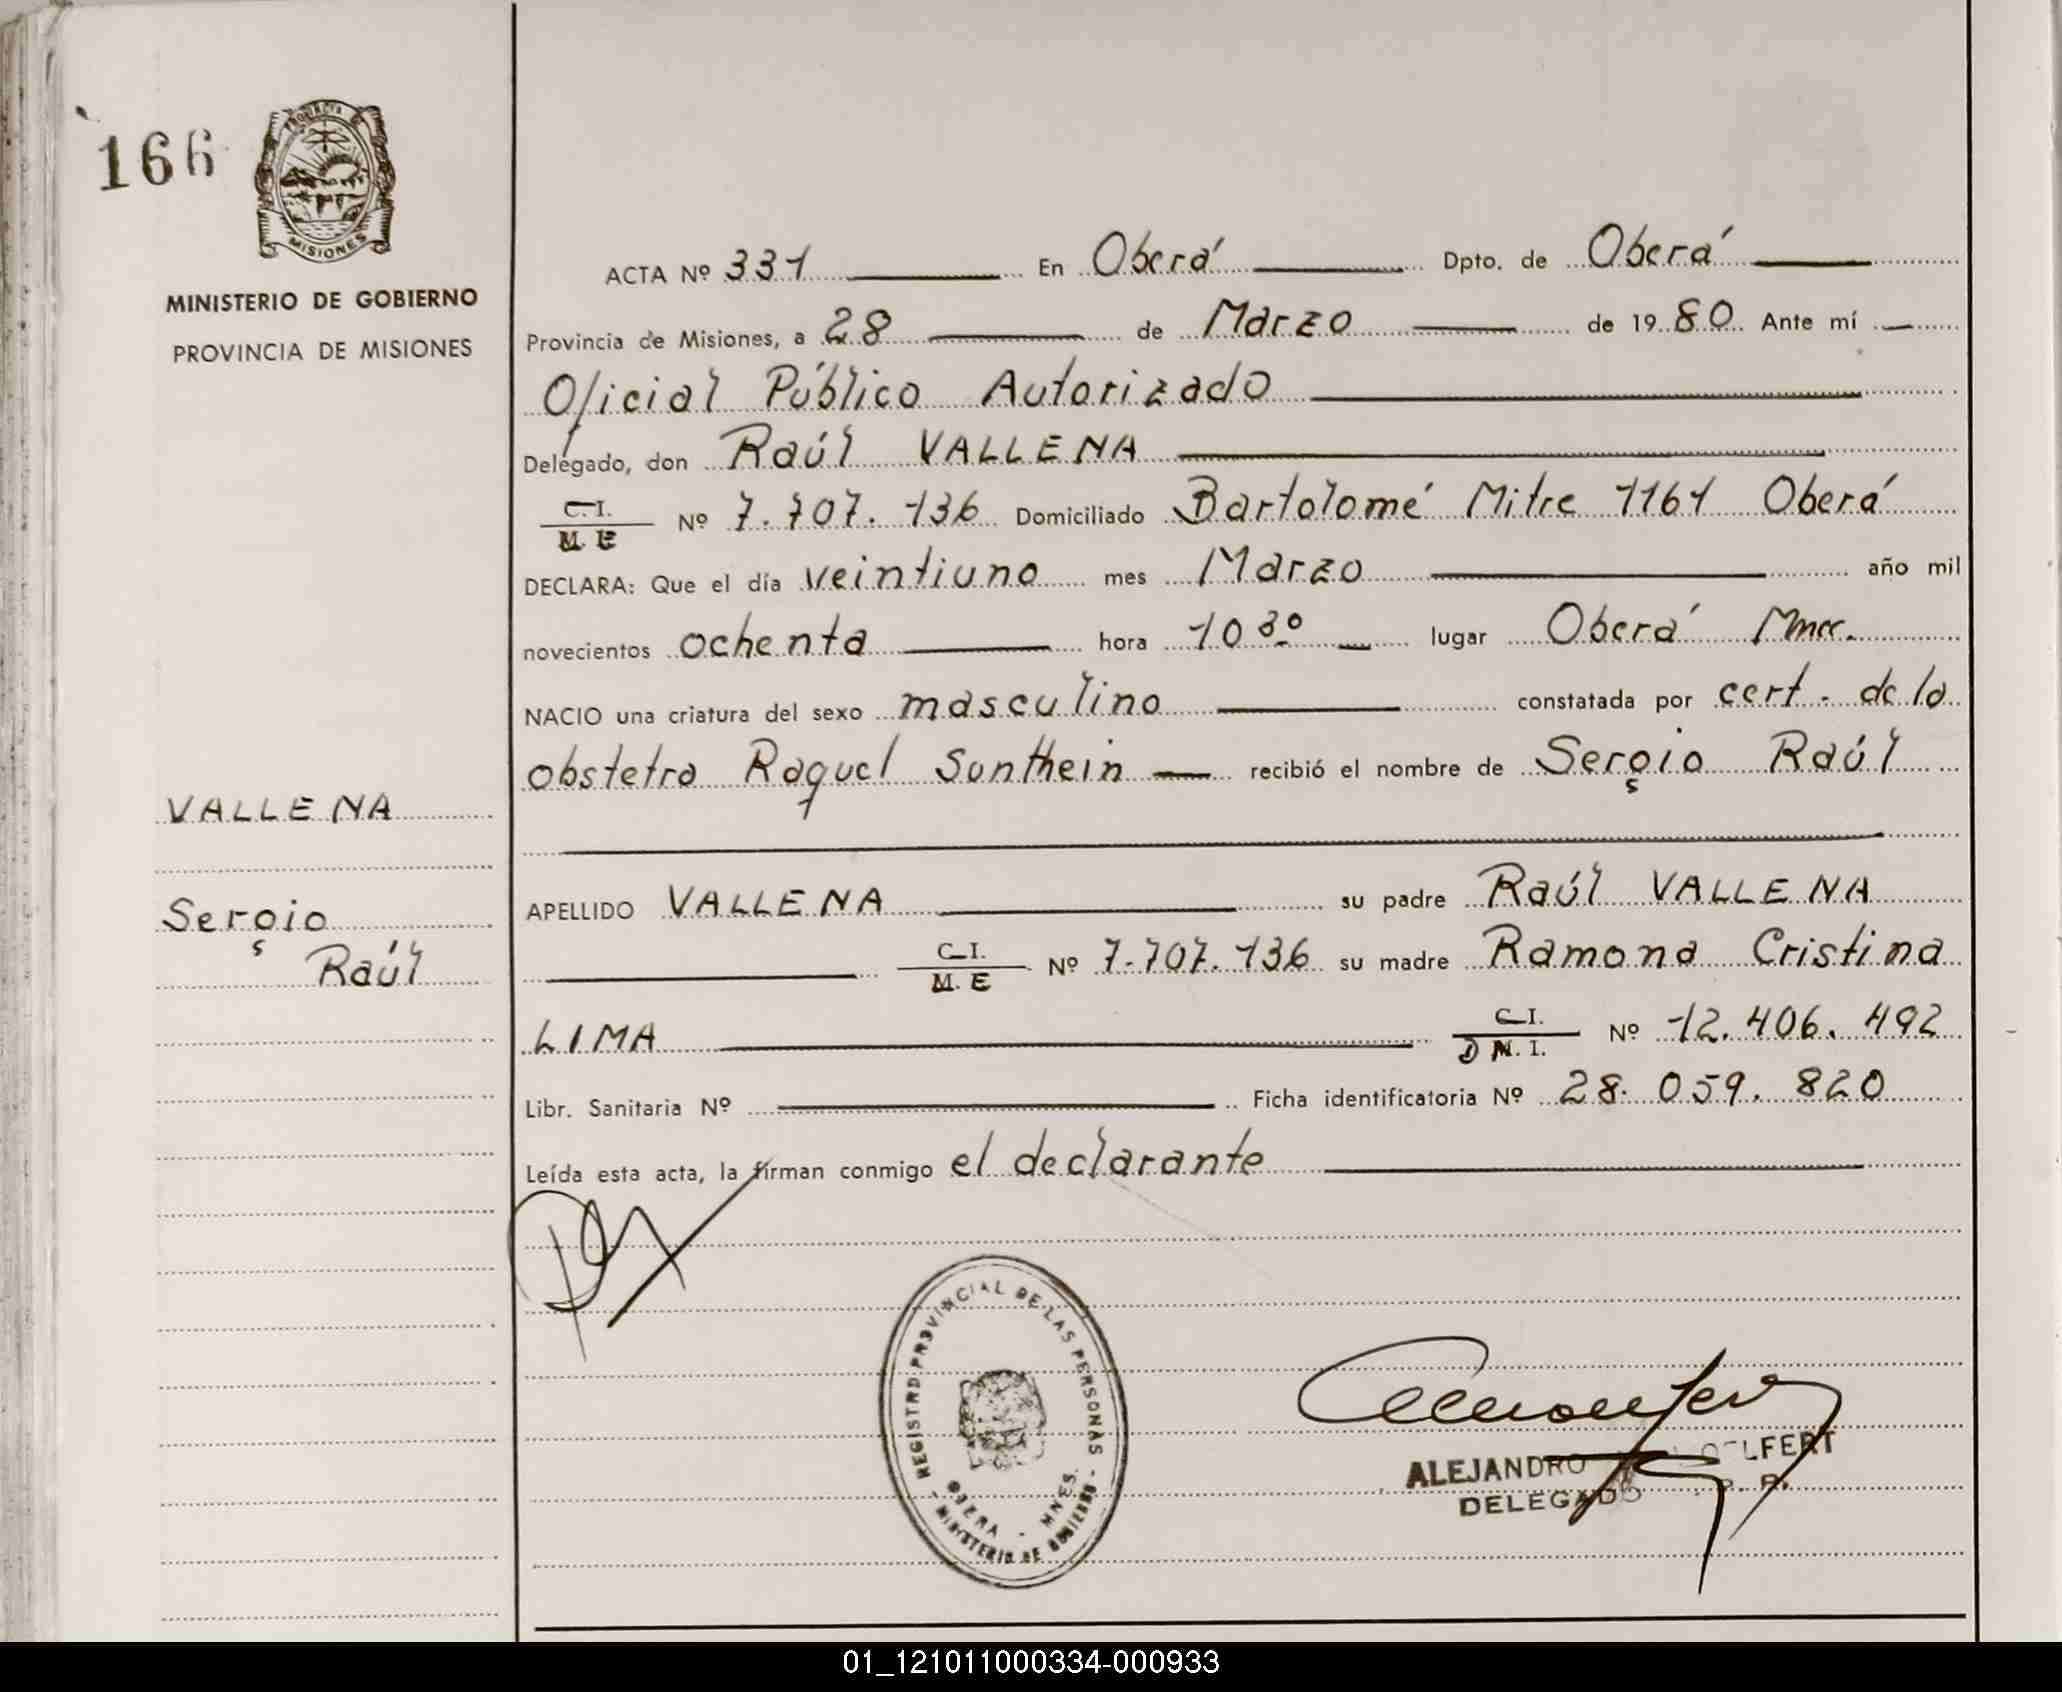 166
PROVINCIA DE
MISIONES
MINISTERIO DE GOBIERNO
PROVINCIA DE MISIONES
VALLENA
Sergio
Raúl
ACTA Nº 331 En Oberá Dpto. de Oberá
Provincia de Misiones, a 28 de Marzo de 1980 Ante mí
Oficial Público Autorizado
Delegado, don Raúl VALLENA
C.I.
M.E Nº 7.707.136 Domiciliado Bartolomé Mitre 1161 Oberá
DECLARA: Que el día veintiuno mes Marzo año mil
novecientos ochenta hora 10 30 lugar Oberá Mnes.
NACIO una criatura del sexo masculino constatada por cert. de la
obstetra Raquel Sunthein recibió el nombre de Sergio Raúl
APELLIDO VALLENA su padre Raúl VALLENA
C.I.
M.E Nº 7.707.136 su madre Ramona Cristina
LIMA C.I.
D N.I. Nº 12.406.492
Libr. Sanitaria Nº Ficha identificatoria Nº 28.059.820
Leída esta acta, la firman conmigo el declarante
REGISTRO PROVINCIAL DE LAS PERSONAS
OBERA - MNES.
- MINISTERIO DE GOBIERNO -
ALEJANDRO
DELEGADO
01_121011000334-000933